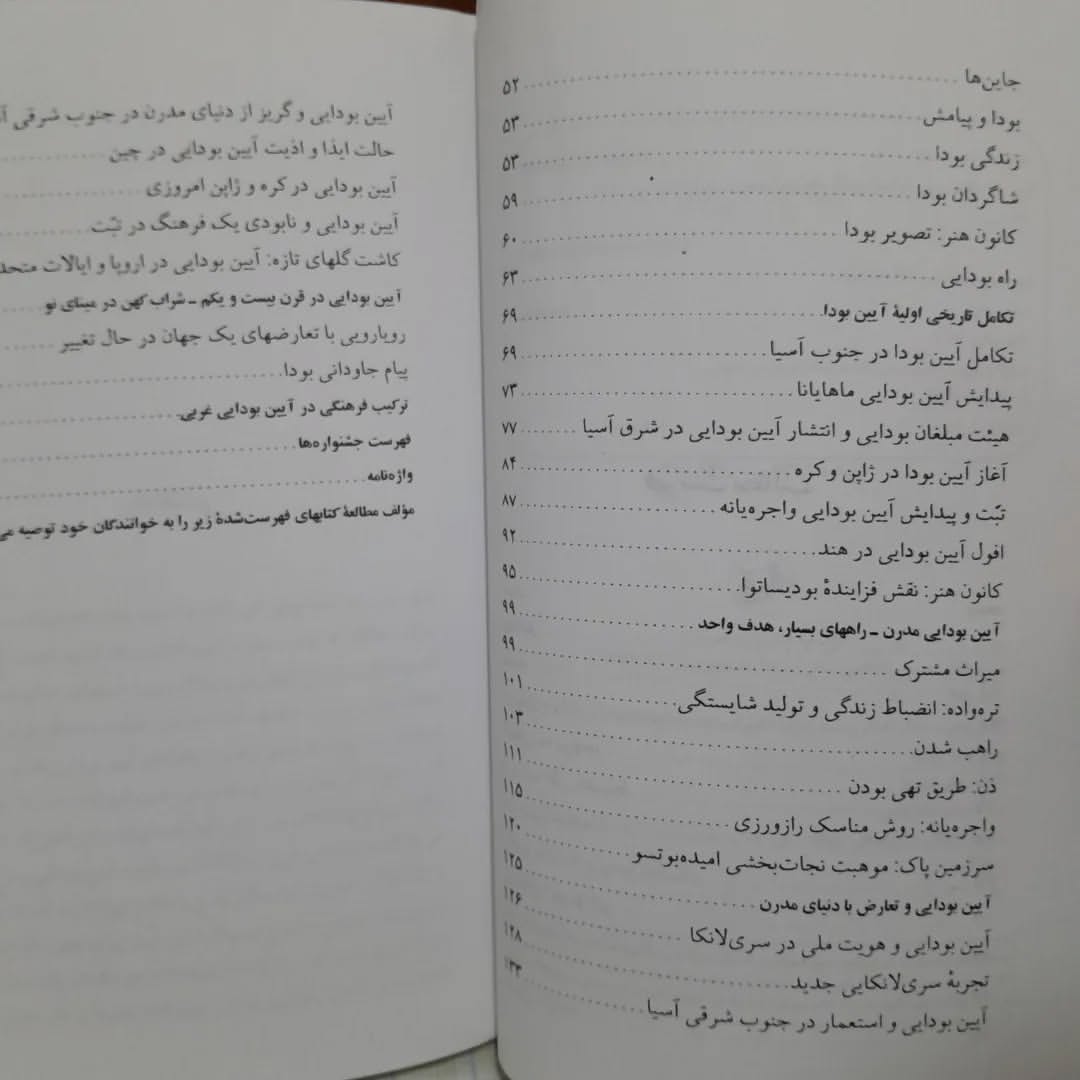 جاین‌ها ........ ۵۲
بودا و پیامش ........ ۵۳
زندگی بودا ........ ۵۳
شاگردان بودا ........ ۵۹
کانون هنر: تصویر بودا ........ ۶۰
راه بودایی ........ ۶۳
تکامل تاریخی اولیهٔ آیین بودا ........ ۶۹
تکامل آیین بودا در جنوب آسیا ........ ۶۹
پیدایش آیین بودایی ماهایانا ........ ۷۳
هیئت مبلغان بودایی و انتشار آیین بودایی در شرق آسیا ........ ۷۷
آغاز آیین بودا در ژاپن و کره ........ ۸۴
تبّت و پیدایش آیین بودایی واجره‌یانه ........ ۸۷
افول آیین بودایی در هند ........ ۹۲
کانون هنر: نقش فزایندهٔ بودیساتوا ........ ۹۵
آیین بودایی مدرن ـ راههای بسیار، هدف واحد ........ ۹۹
میراث مشترک ........ ۹۹
تره‌واده: انضباط زندگی و تولید شایستگی ........ ۱۰۱
راهب شدن ........ ۱۰۳
ذن: طریق تهی بودن ........ ۱۱۱
واجره‌یانه: روش مناسک رازورزی ........ ۱۱۵
سرزمین پاک: موهبت نجات‌بخشی امیده‌بوتسو ........ ۱۲۰
آیین بودایی و تعارض با دنیای مدرن ........ ۱۲۵
آیین بودایی و هویت ملی در سری‌لانکا ........ ۱۲۶
تجربهٔ سری‌لانکایی جدید ........ ۱۲۸
آیین بودایی و استعمار در جنوب شرقی آسیا ........ ۱۳۳
آیین بودایی و گریز از دنیای مدرن در جنوب شرقی
حالت ایذا و اذیت آیین بودایی در چین ........
آیین بودایی در کره و ژاپن امروزی ........
آیین بودایی و نابودی یک فرهنگ در تبّت ........
کاشت گلهای تازه: آیین بودایی در اروپا و ایالات متحد
آیین بودایی در قرن بیست و یکم ـ شراب کهن در مینای نو ........
رویارویی با تعارضهای یک جهان در حال تغییر ........
پیام جاودانی بودا ........
ترکیب فرهنگی در آیین بودایی غربی ........
فهرست جشنواره‌ها ........
واژه‌نامه ........
مؤلف مطالعهٔ کتابهای فهرست‌شدهٔ زیر را به خوانندگان خود توصیه می